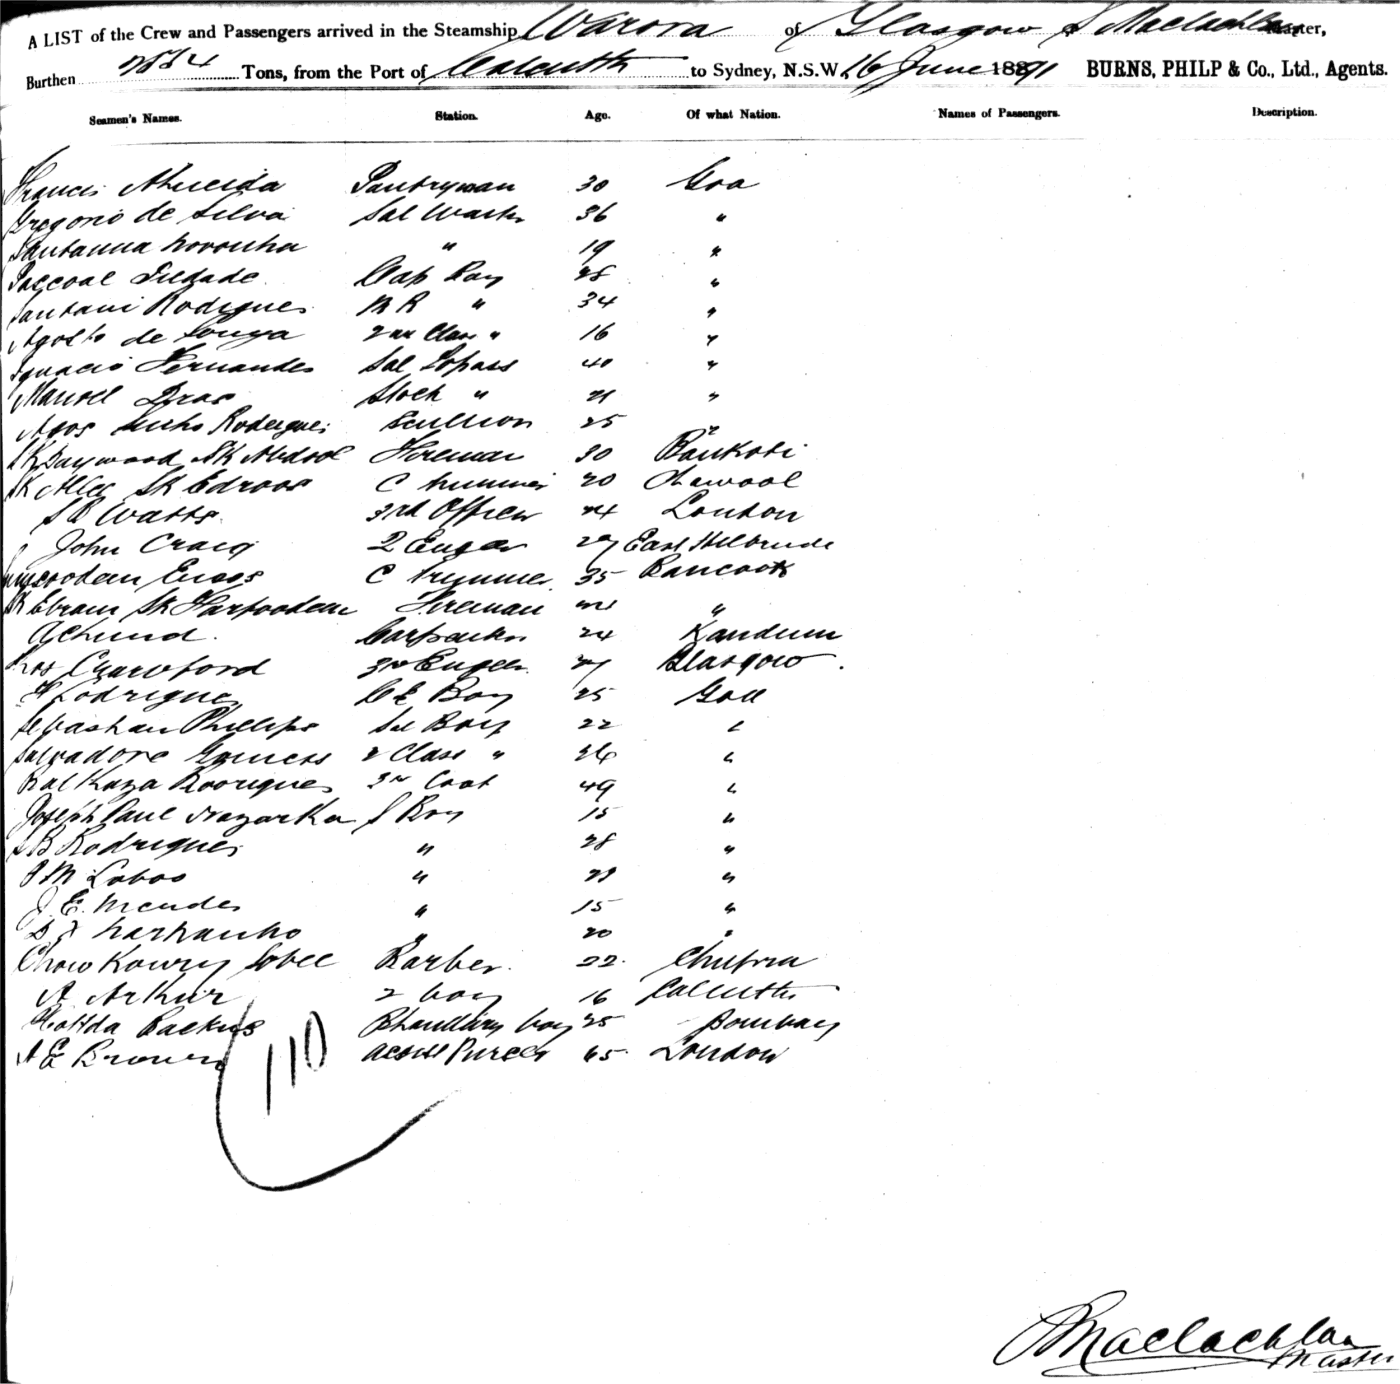 A LIST of the Crew and Passengers arrived in the Steamship Warora of Glasgow S Maclachlan Master,
Burthen Tons, from the Port of Calcutta to Sydney, N.S.W. 16 June 1891 BURNS, PHILP & Co., Ltd., Agents.
Seamen's Names. Station. Age. Of what Nation. Names of Passengers. Description.
Francis Almeida Pantryman 30 Goa
Gregorio de Silva Sal Waiter 36 "
Santanna Noronha " 19 "
Pascoal Cap Boy 28 "
Santani Rodigues " 34 "
Agosto de Souza 2nd Class " 16 "
Ignacio Fernandes Sal Topass 40 "
Manoel Dias " 21 "
Rodrigues Scullion 25 "
SK Dawood SK Abdool Fireman 30 Bankoti
SK Allee SK Edroos C trimmer 20
Watts 3rd Officer 24 London
John Craig 2 Enger 29 East Kilbride
C trimmer 35 Bancoot
SK Ebram SK Fireman "
Achind Carpenter 24
Crawford 3rd Enger 27 Glasgow.
Rodrigues C E Boy 25 Goa
Sebastian Phillips Sal Boy 22 "
Salvadore Gomess 2 Class " 26 "
Balkaza Rodrigues 3rd Cook 49 "
Joseph Paul S Boy 15 "
B Rodrigues " 28 "
P M Lobos " 29 "
J. E. Mendes " 15 "
" 20 "
Barber. 22.
A Arthur 2 boy 16 Calcutta
Bhandary boy 25 Bombay
A E Brown Purser 65 London
110
Maclachlan
Master